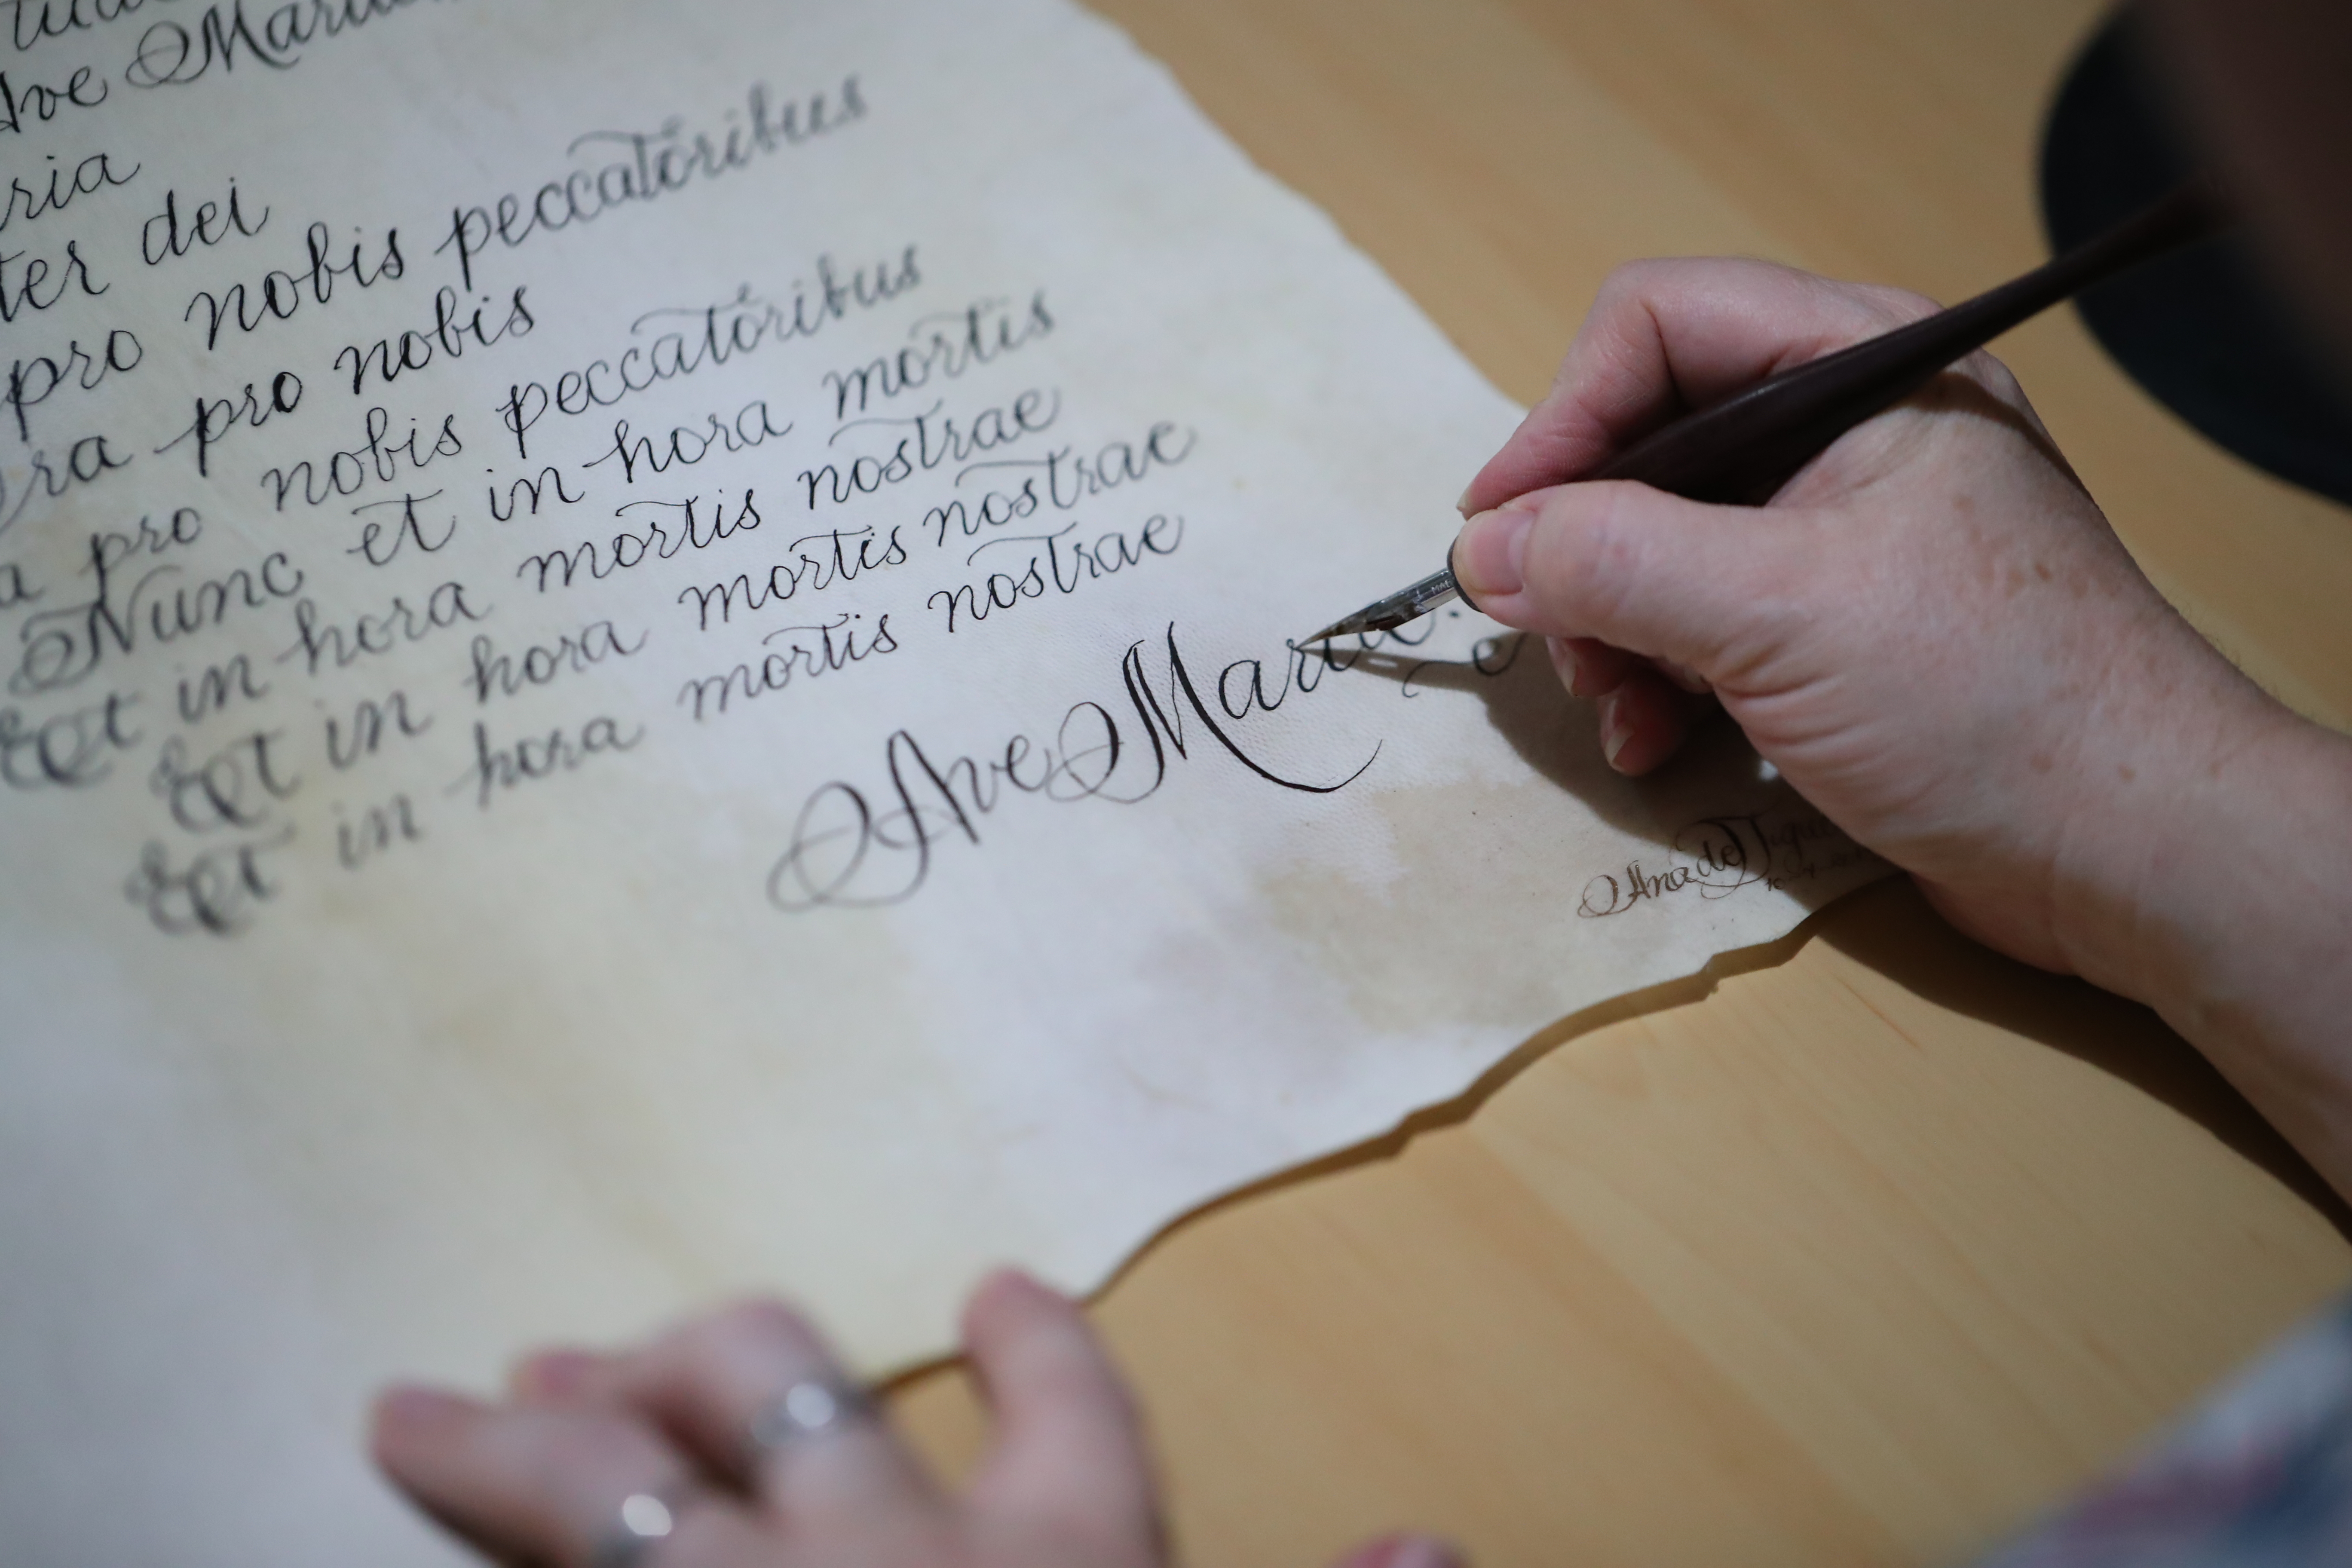 Ave Maria
ria
ter dei
pro nobis peccatoribus
ra pro nobis
a pro nobis peccatoribus
Nunc et in hora mortis
Et in hora mortis nostrae
Et in hora mortis nostrae
Et in hora mortis nostrae
Ave Maria
Ana de